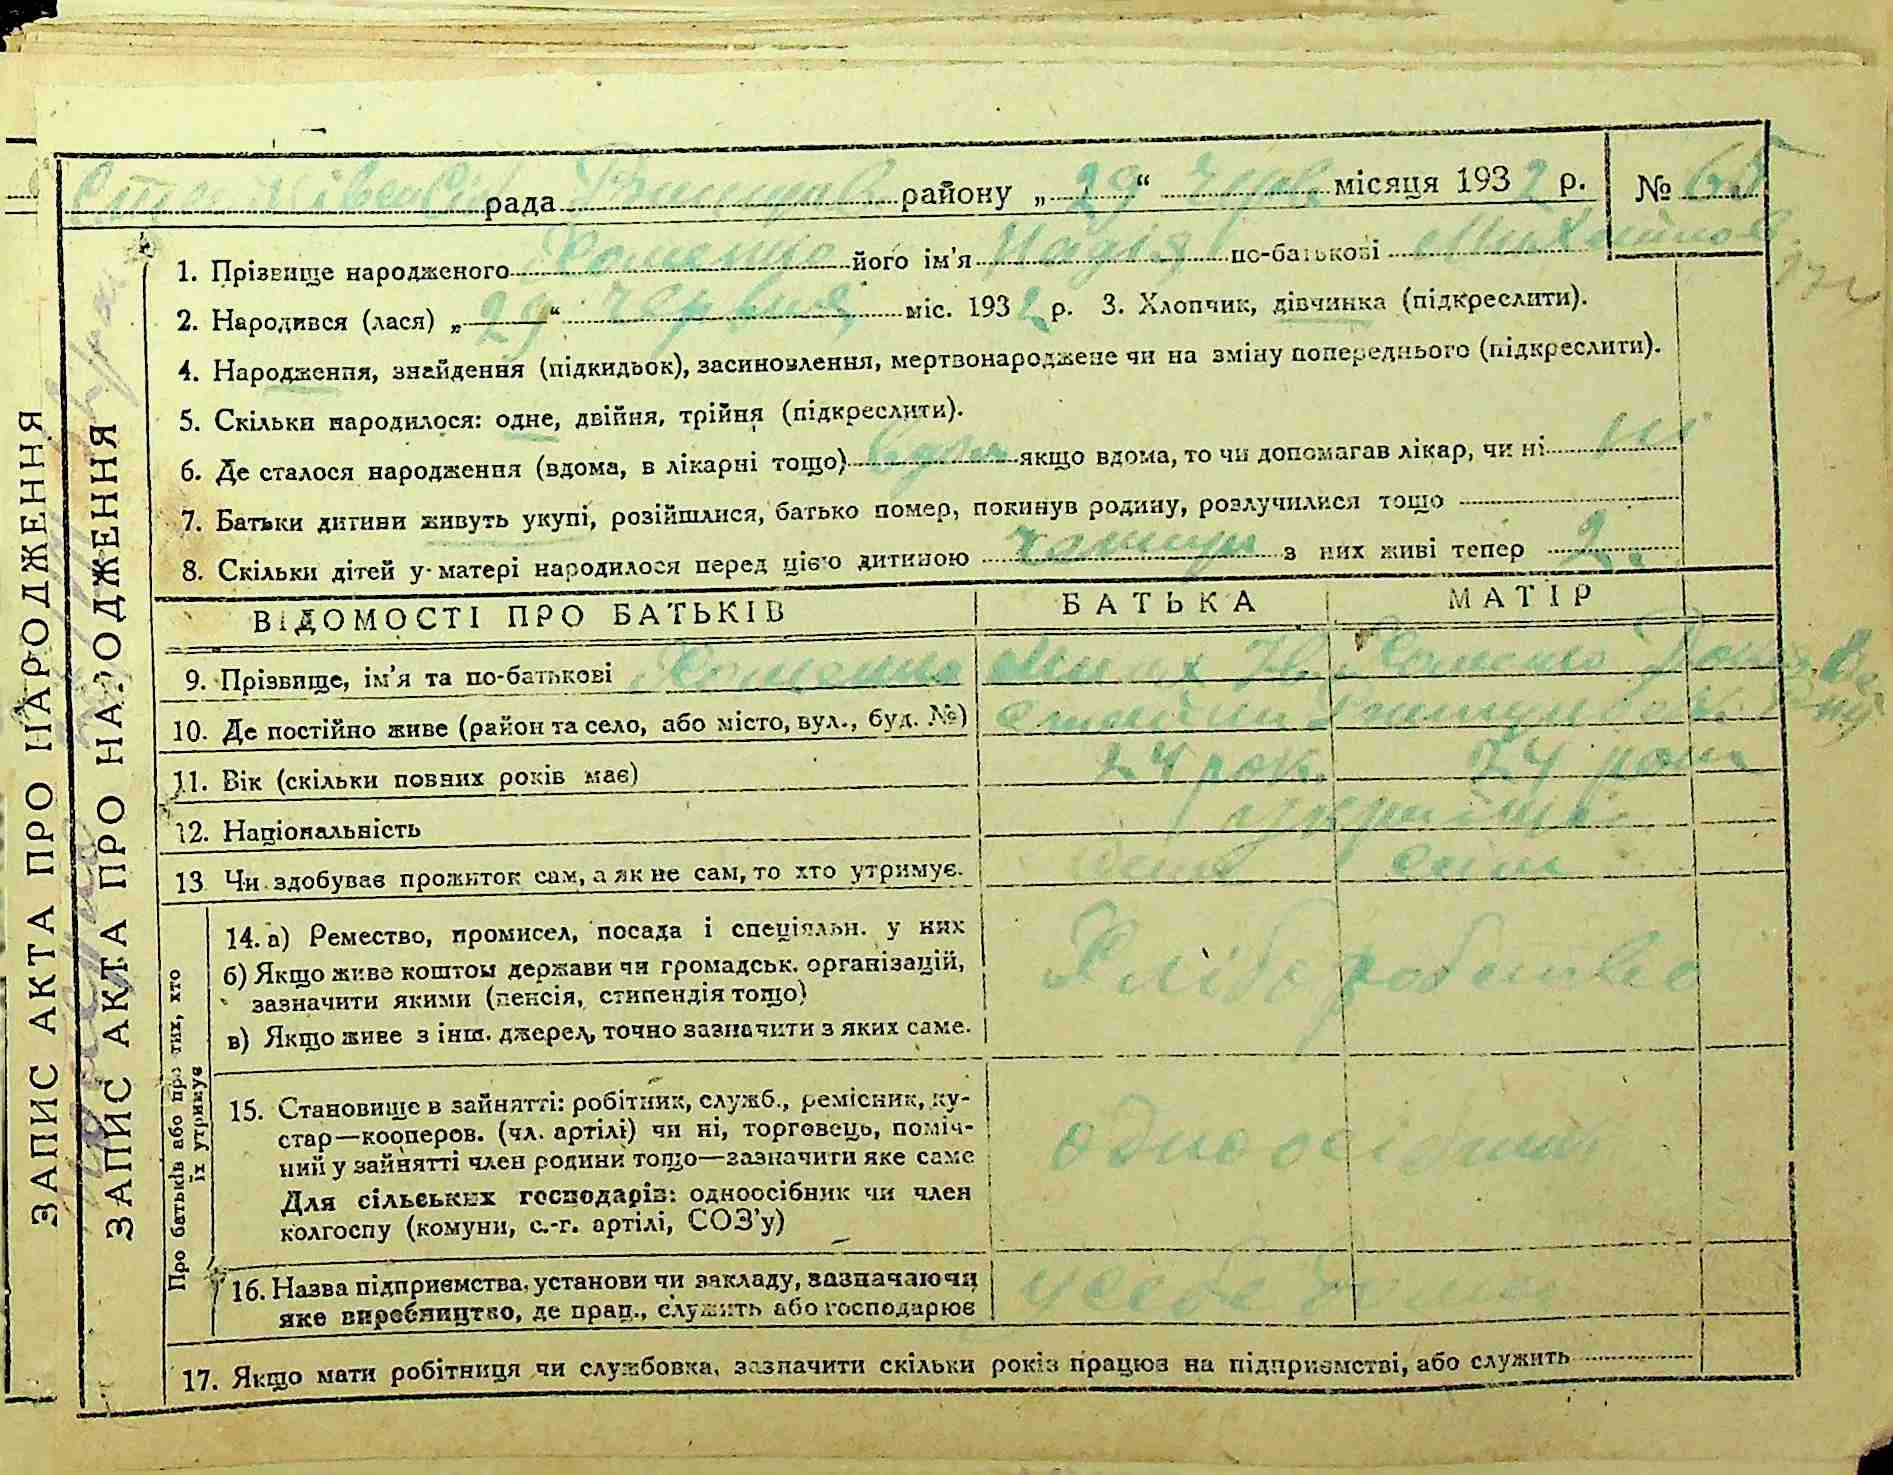 рада району „29“ черв місяця 1932 р. № 65
1. Прізвище народженого Хоменко його ім'я Надія по-батькові Михайлов
2. Народився (лася) „29“ червня міс. 1932 р. 3. Хлопчик, дівчинка (підкреслити).
4. Народження, знайдення (підкидьок), засиновлення, мертвонароджене чи на зміну попереднього (підкреслити).
5. Скільки народилося: одне, двійня, трійня (підкреслити).
6. Де сталося народження (вдома, в лікарні тощо) вдом якщо вдома, то чи допомагав лікар, чи ні ні
7. Батьки дитини живуть укупі, розійшлися, батько помер, покинув родину, розлучилися тощо
8. Скільки дітей у матері народилося перед цією дитиною чотири з них живі тепер 2.
ВІДОМОСТІ ПРО БАТЬКІВ БАТЬКА МАТІР
9. Прізвище, ім'я та по-батькові Хоменко Мих Хоменко
10. Де постійно живе (район та село, або місто, вул., буд. №)
11. Вік (скільки повних років має) 24 рок. 24 роки
12. Національність україн
13. Чи здобуває прожиток сам, а як не сам, то хто утримує.
Про батьків або про тих, хто
їх утримує
14. а) Ремество, промисел, посада і спеціяльн. у них
б) Якщо живе коштом держави чи громадськ. організацій,
зазначити якими (пенсія, стипендія тощо) Хліборобство
в) Якщо живе з інш. джерел, точно зазначити з яких саме.
15. Становище в зайнятті: робітник, служб., ремісник, ку-
стар—кооперов. (чл. артілі) чи ні, торговець, поміч-
ний у зайнятті член родини тощо—зазначити яке саме одноосібник
Для сільських господарів: одноосібник чи член
колгоспу (комуни, с.-г. артілі, СОЗ'у)
16. Назва підприємства, установи чи закладу, зазначаючи у себе дома
яке виробництво, де прац., служить або господарює
17. Якщо мати робітниця чи службовка, зазначити скільки років працює на підприємстві, або служить
ЗАПИС АКТА ПРО НАРОДЖЕННЯ
ЗАПИС АКТА ПРО НАРОДЖЕННЯ